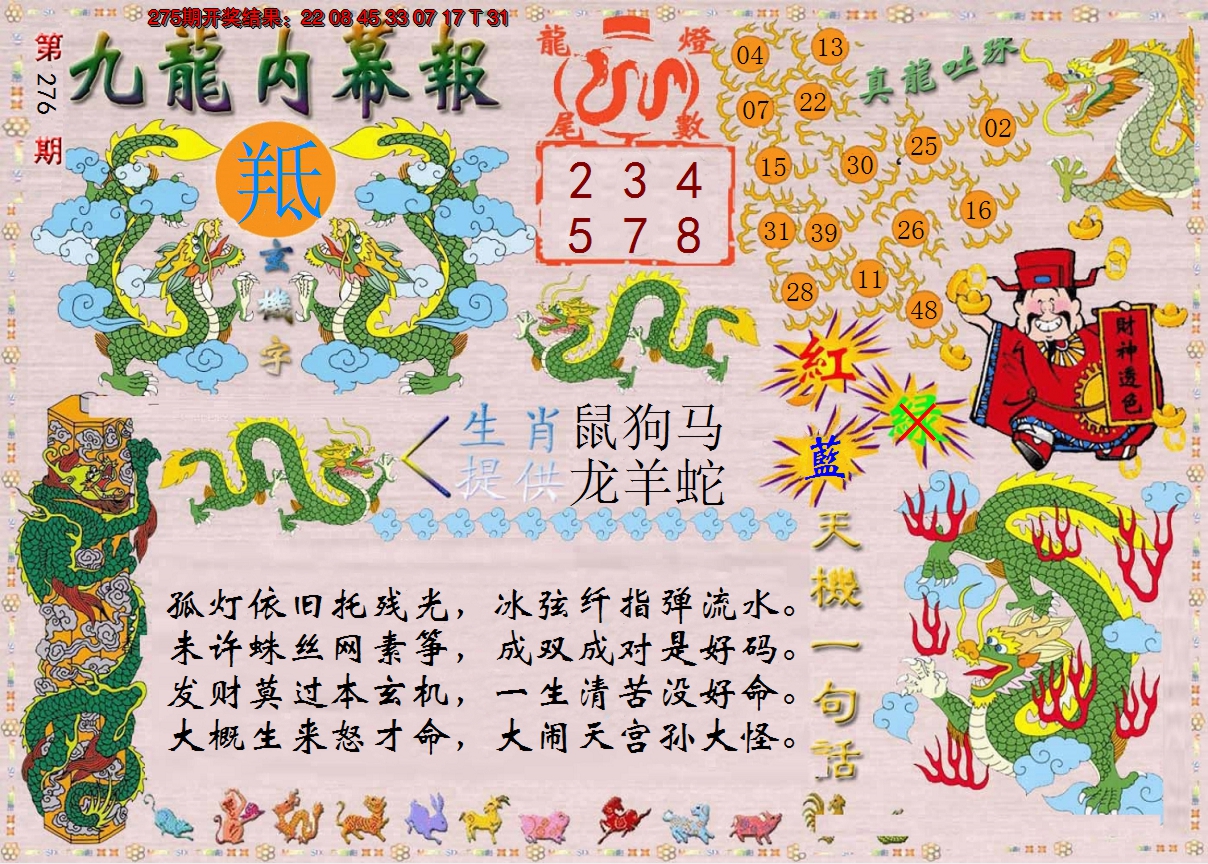 275期开奖结果：22 08 45 33 07 17 T 31
第276期
九龍内幕報
羝
玄機字
龍燈
尾數
2 3 4
5 7 8
真龍吐珠
04 13
07 22
25 02
15 30
31 39 26 16
28 11
48
財神透色
紅
绿
藍
生肖提供
鼠狗马
龙羊蛇
天機一句話
孤灯依旧托残光，冰弦纤指弹流水。
未许蛛丝网素筝，成双成对是好码。
发财莫过本玄机，一生清苦没好命。
大概生来怒才命，大闹天宫孙大怪。